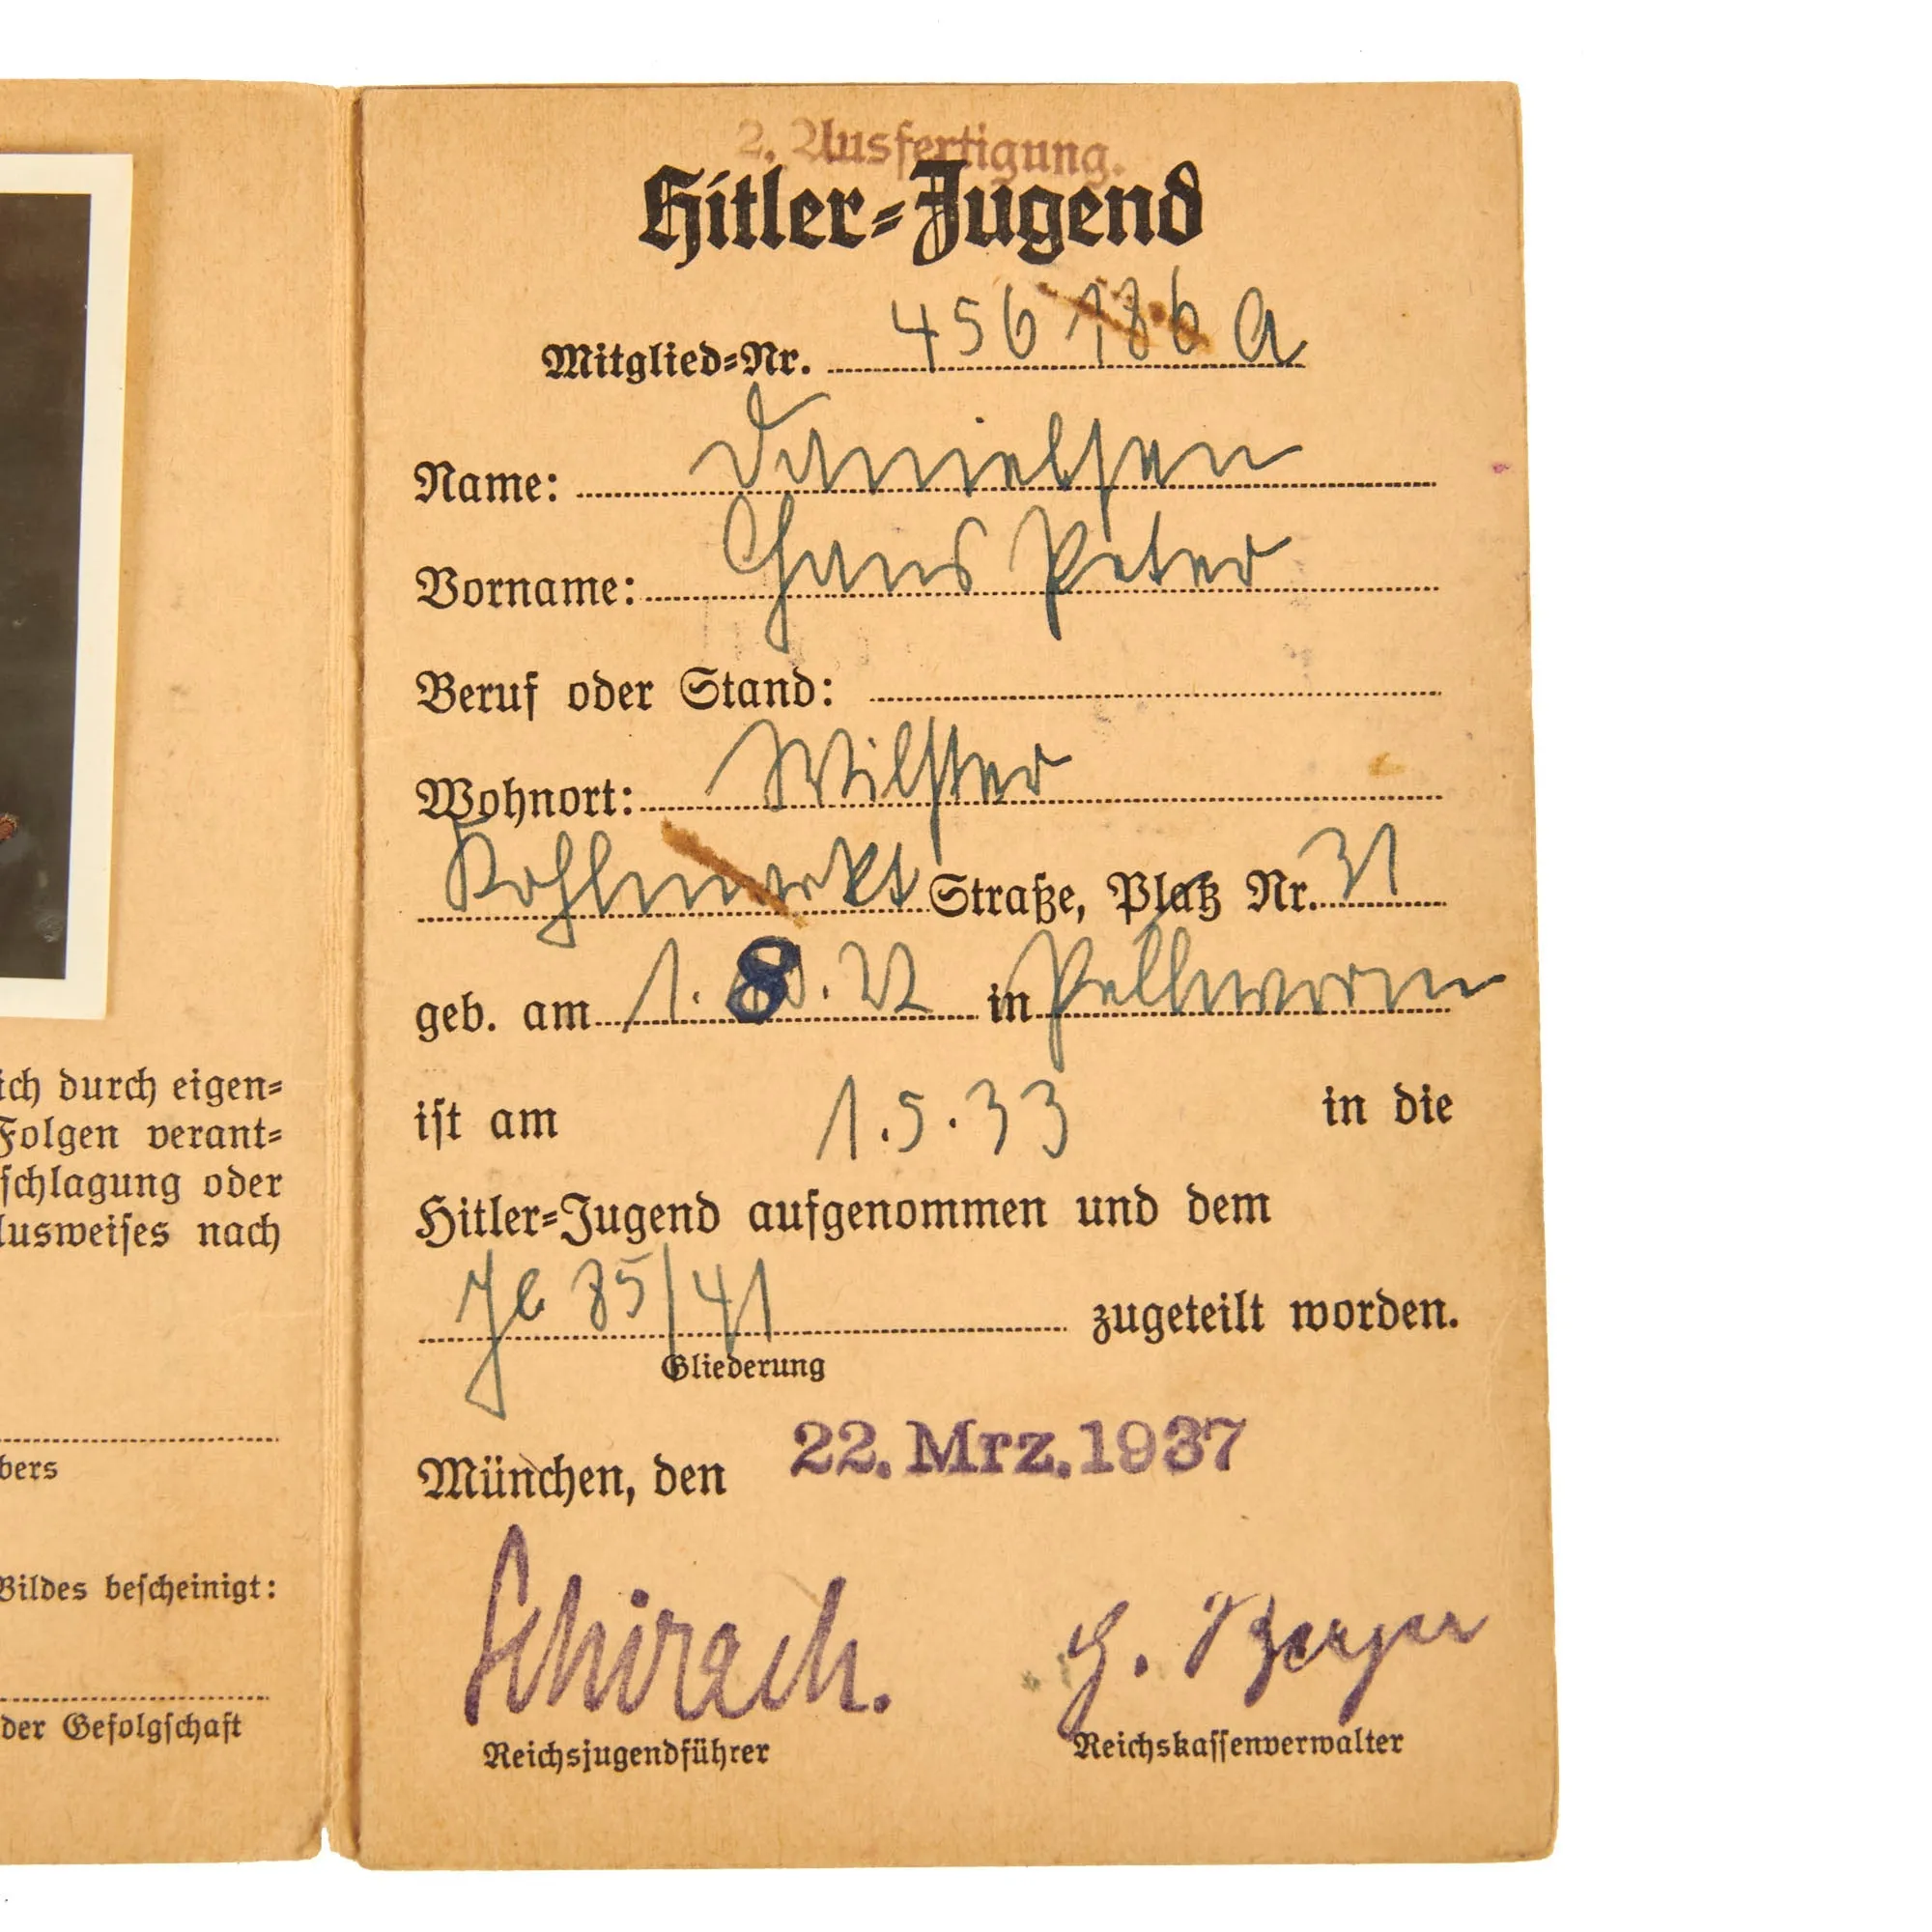 ich durch eigen=
Folgen verant=
schlagung oder
Ausweises nach
bers
Bildes bescheinigt:
der Gefolgschaft
2. Ausfertigung.
Hitler=Jugend
Mitglied=Nr. 456 186 A
Name: Danielsen
Vorname: Hans Peter
Beruf oder Stand:
Wohnort: Wilster
Kohlmarkt Straße, Platz Nr. 31
geb. am 1. 8. 22 in Pellworm
ist am 1.5.33 in die
Hitler=Jugend aufgenommen und dem
85/41 zugeteilt worden.
Gliederung
München, den 22. Mrz. 1937
Schirach. G. Berger
Reichsjugendführer Reichskassenverwalter